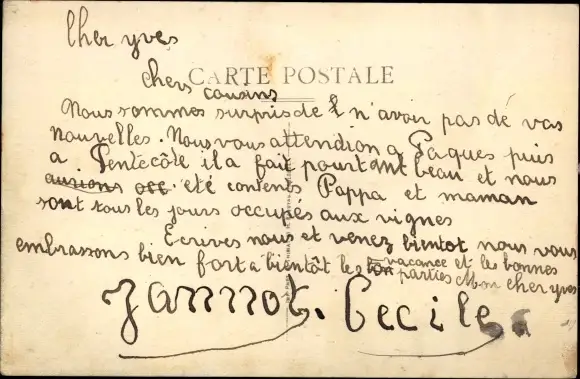 Cher yves
CARTE POSTALE
chers cousins
Nous sommes surpris de n'avoir pas dé vos
nouvelles. Nous vous attendion a Paques puis
a Pentecôte il a fait pourtant beau et nous
aurions été contents Pappa et maman
sont tous les jours occupés aux vignes
Ecrives nous et venez bientot nous vous
embrassons bien fort a bientôt les vacance et les bonnes
parties Mon cher yves
Jannot. Cecile